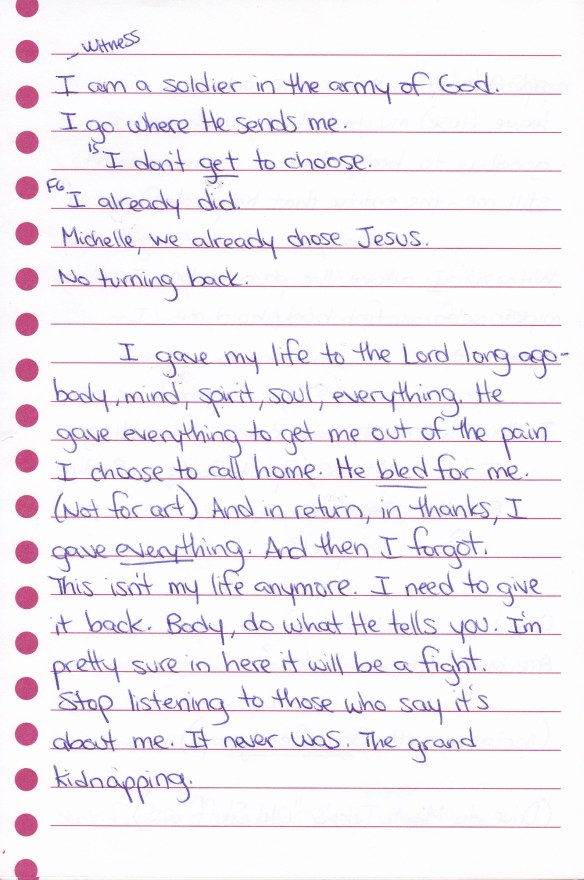 Witness
I am a soldier in the army of God.
I go where He sends me.
15 I don't get to choose.
F6 I already did.
Michelle, we already chose Jesus.
No turning back.
I gave my life to the Lord long ago-
body, mind, spirit, soul, everything. He
gave everything to get me out of the pain
I choose to call home. He bled for me.
(Not for art) And in return, in thanks, I
gave everything. And then I forgot.
This isn't my life anymore. I need to give
it back. Body, do what He tells you. I'm
pretty sure in here it will be a fight.
Stop listening to those who say it's
about me. It never was. The grand
kidnapping.